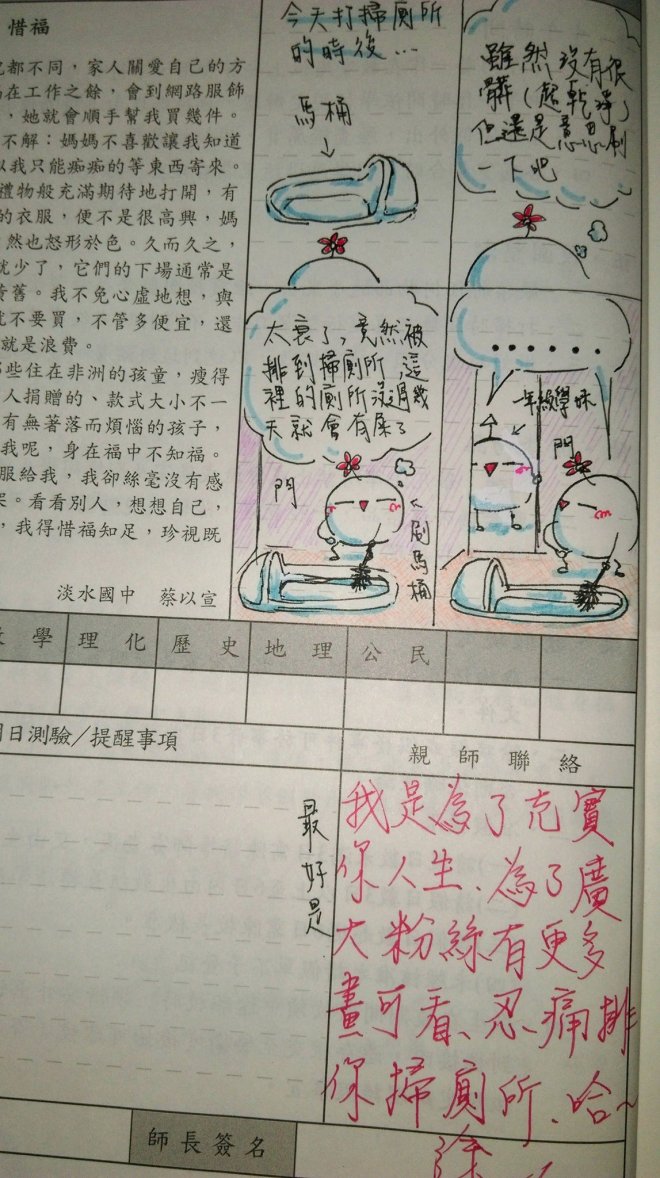 惜福
都不同，家人關愛自己的方
在工作之餘，會到網路服飾
，她就會順手幫我買幾件。
不解：媽媽不喜歡讓我知道
以我只能痴痴的等東西寄來。
禮物般充滿期待地打開，有
的衣服，便不是很高興，媽
然也怒形於色。久而久之，
就少了，它們的下場通常是
舊。我不免心虛地想，與
就不要買，不管多便宜，還
就是浪費。
那些住在非洲的孩童，瘦得
人捐贈的、款式大小不一
有無著落而煩惱的孩子，
我呢，身在福中不知福。
服給我，我卻絲毫沒有感
。看看別人，想想自己，
，我得惜福知足，珍視既
淡水國中 蔡以宣
今天打掃廁所
的時後...
馬桶
雖然沒有很
髒（超乾淨）
但還是意思刷
一下吧
太衰了，竟然被
排到掃廁所 這
裡的廁所沒過幾
天就會有屎了
門
刷馬桶
......
一年級學妹
門
學 理化 歷史 地理 公民
日測驗／提醒事項
親師聯絡
最好是
我是為了充實
你人生、為了廣
大粉絲有更多
畫可看、忍痛排
你掃廁所、哈~
徐
師長簽名